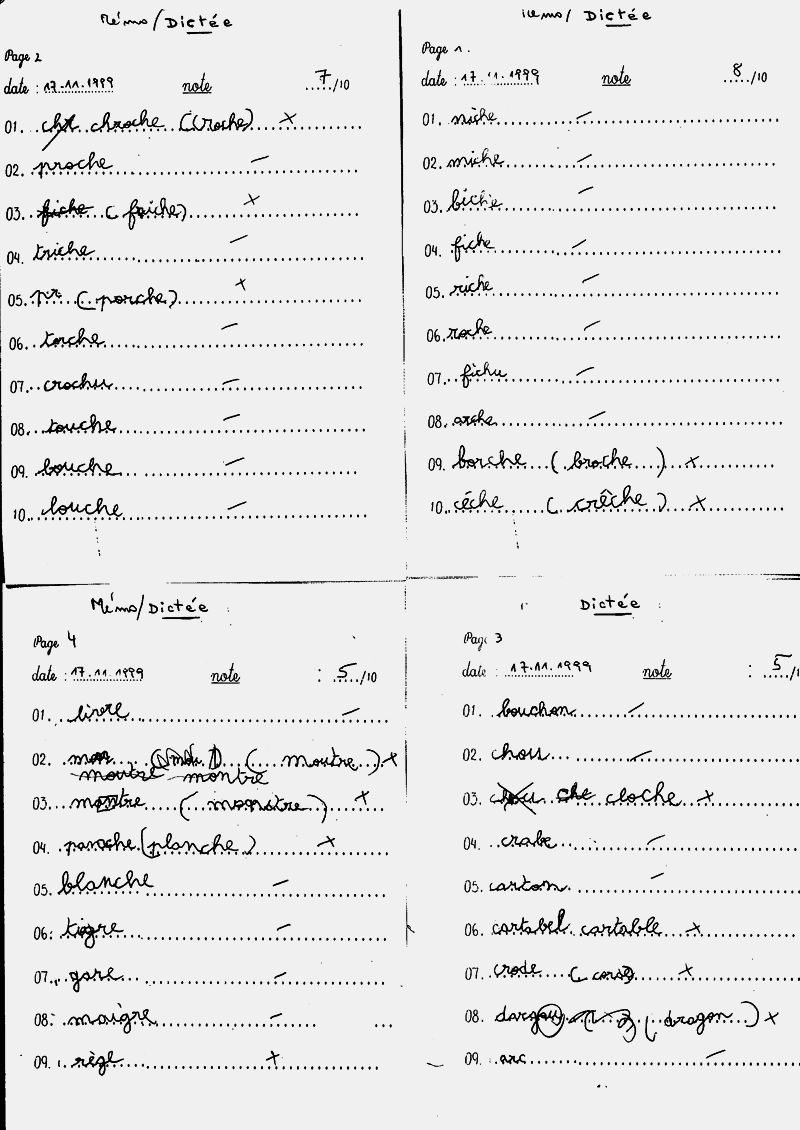 Mémo/Dictée
Page 2
date : 17.11.1999 note 7/10
01. chroche (croche) ×
02. proche —
03. fiche (friche) ×
04. triche —
05. pr (porche) ×
06. torche —
07. crochu —
08. touche —
09. bouche —
10. louche —
Mémo/ Dictée
Page 1.
date : 17.11.1999 note 8/10
01. niche —
02. miche —
03. biche —
04. fiche —
05. riche —
06. roche —
07. fichu —
08. arche —
09. borche (broche) ×
10. céche (crêche) ×
Mémo/Dictée :
Page 4
date : 17.11.1999 note : 5/10
01. livre —
02. mon (montre) ×
montre montre
03. montre (monstre) ×
04. panoche (planche) ×
05. blanche —
06: tigre —
07. gare —
08: maigre —
09. règl ×
Dictée :
Page 3
date : 17.11.1999 note : 5/1
01. bouchon —
02. chou —
03. chou che cloche ×
04. crabe —
05. carton —
06. cartabel cartable ×
07. crode (corde) ×
08. dargon (dragon) ×
09. arc —